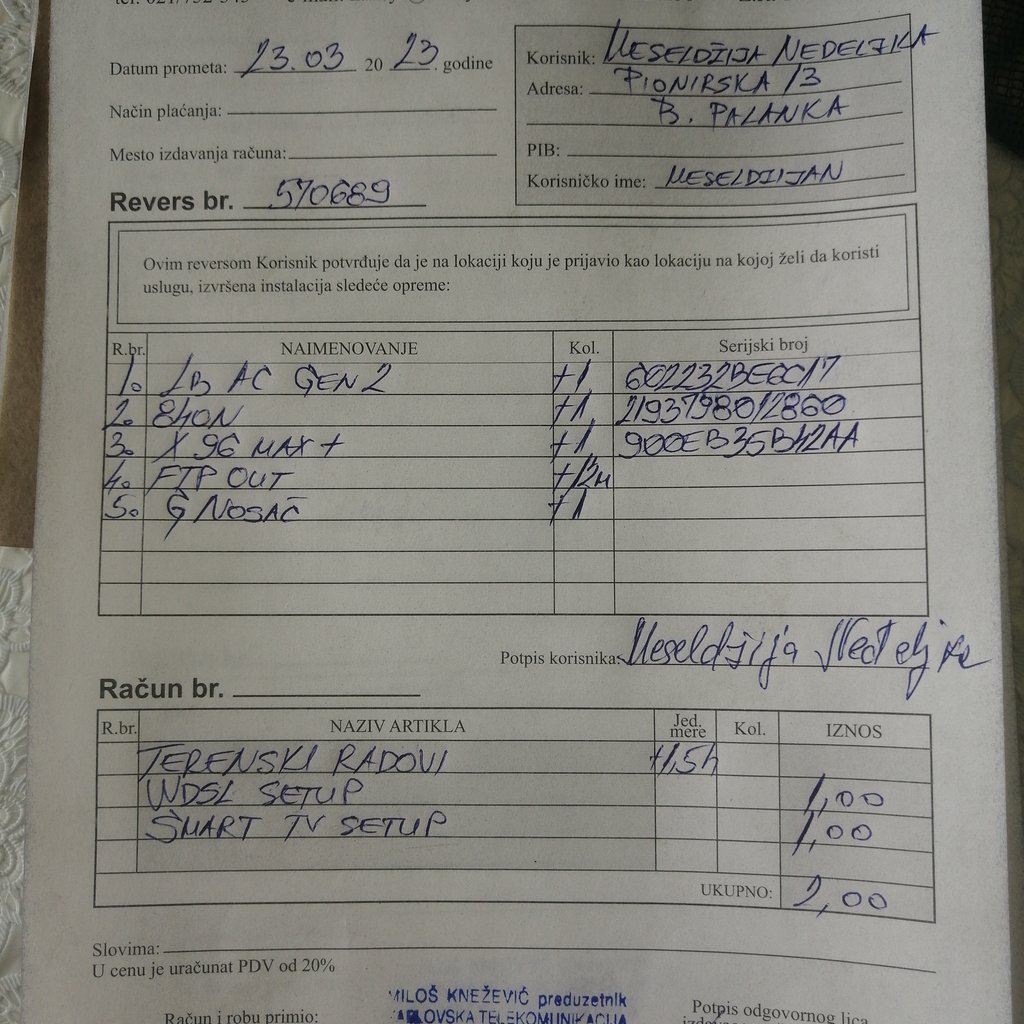 Datum prometa: 23.03 2023. godine
Način plaćanja:
Mesto izdavanja računa:
Revers br. 570689
Korisnik: MESELDŽIJA NEDELJKA
Adresa: PIONIRSKA 13
B. PALANKA
PIB:
Korisničko ime: MESELDZIJAN
Ovim reversom Korisnik potvrđuje da je na lokaciji koju je prijavio kao lokaciju na kojoj želi da koristi
uslugu, izvršena instalacija sledeće opreme:
R.br. NAIMENOVANJE Kol. Serijski broj
1. LB AC GEN2 +1 602232BE6C17
2. 840N +1 2193798012860
3. X96 MAX+ +1 900EB35B42AA
4. FTP OUT +12m
5. G NOSAČ +1
Potpis korisnika: Meseldžija Nedeljka
Račun br.
R.br. NAZIV ARTIKLA Jed. mere Kol. IZNOS
TERENSKI RADOVI +1,5h
WDSL SETUP 1,00
SMART TV SETUP 1,00
UKUPNO: 2,00
Slovima:
U cenu je uračunat PDV od 20%
MILOŠ KNEŽEVIĆ preduzetnik
KARLOVSKA TELEKOMUNIKACIJA
Račun i robu primio:
Potpis odgovornog lica